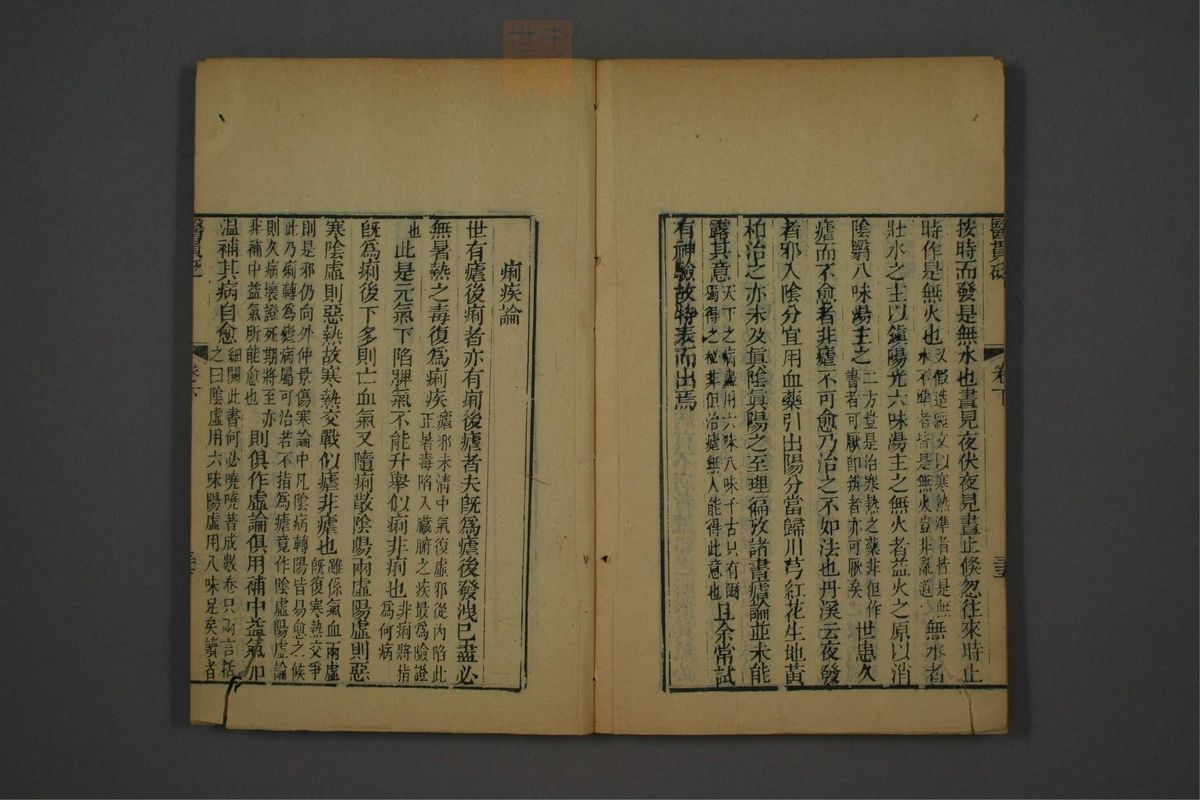 按時而發是無水也晝見夜伏夜見晝止倏忽往來時止
時作是無火也又假造經文以寒熱準者皆是無水不準者皆是無火豈非亂道無水者
壯水之主以鎮陽光六味湯主之無火者益火之原以消
陰翳八味湯主之二方豈是治寒熱之藥非但作書者可厭卽辨者亦可厭矣世患久
瘧而不愈者非瘧不可愈乃治之不如法也丹溪云夜發
者邪入陰分宜用血藥引出陽分當歸川芎紅花生地黃
柏治之亦未及眞陰眞陽之至理徧攷諸書瘧論並未能
露其意天下之病盡用六味八味千古只有爾獨得之秘非但治瘧無人能得此意也且余常試
有神驗故特表而出焉
醫貫砭
卷下
痢疾論
世有瘧後痢者亦有痢後瘧者夫旣爲瘧後發洩已盡必
無暑熱之毒復爲痢疾瘧邪未清中氣復虛邪從內陷此正暑毒陷入臟腑之疾最爲險證
也此是元氣下陷脾氣不能升舉似痢非痢也非痢將指爲何病
旣爲痢後下多則亡血氣又隨痢散陰陽兩虛陽虛則惡
寒陰虛則惡熱故寒熱交戰似瘧非瘧也雖係氣血兩虛旣復寒熱交爭
則是邪仍向外仲景傷寒論中凡陰病轉陽皆易愈之候此乃痢轉爲瘧病屬可治若不指爲瘧竟作陰虛陽虛論
則久病壞證死期將至亦非補中益氣所能愈也則俱作虛論俱用補中益氣加
溫補其病自愈細閱此書何必嘵嘵著成數卷只兩言括之曰陰虛用六味陽虛用八味足矣讀者
醫貫砭
卷下